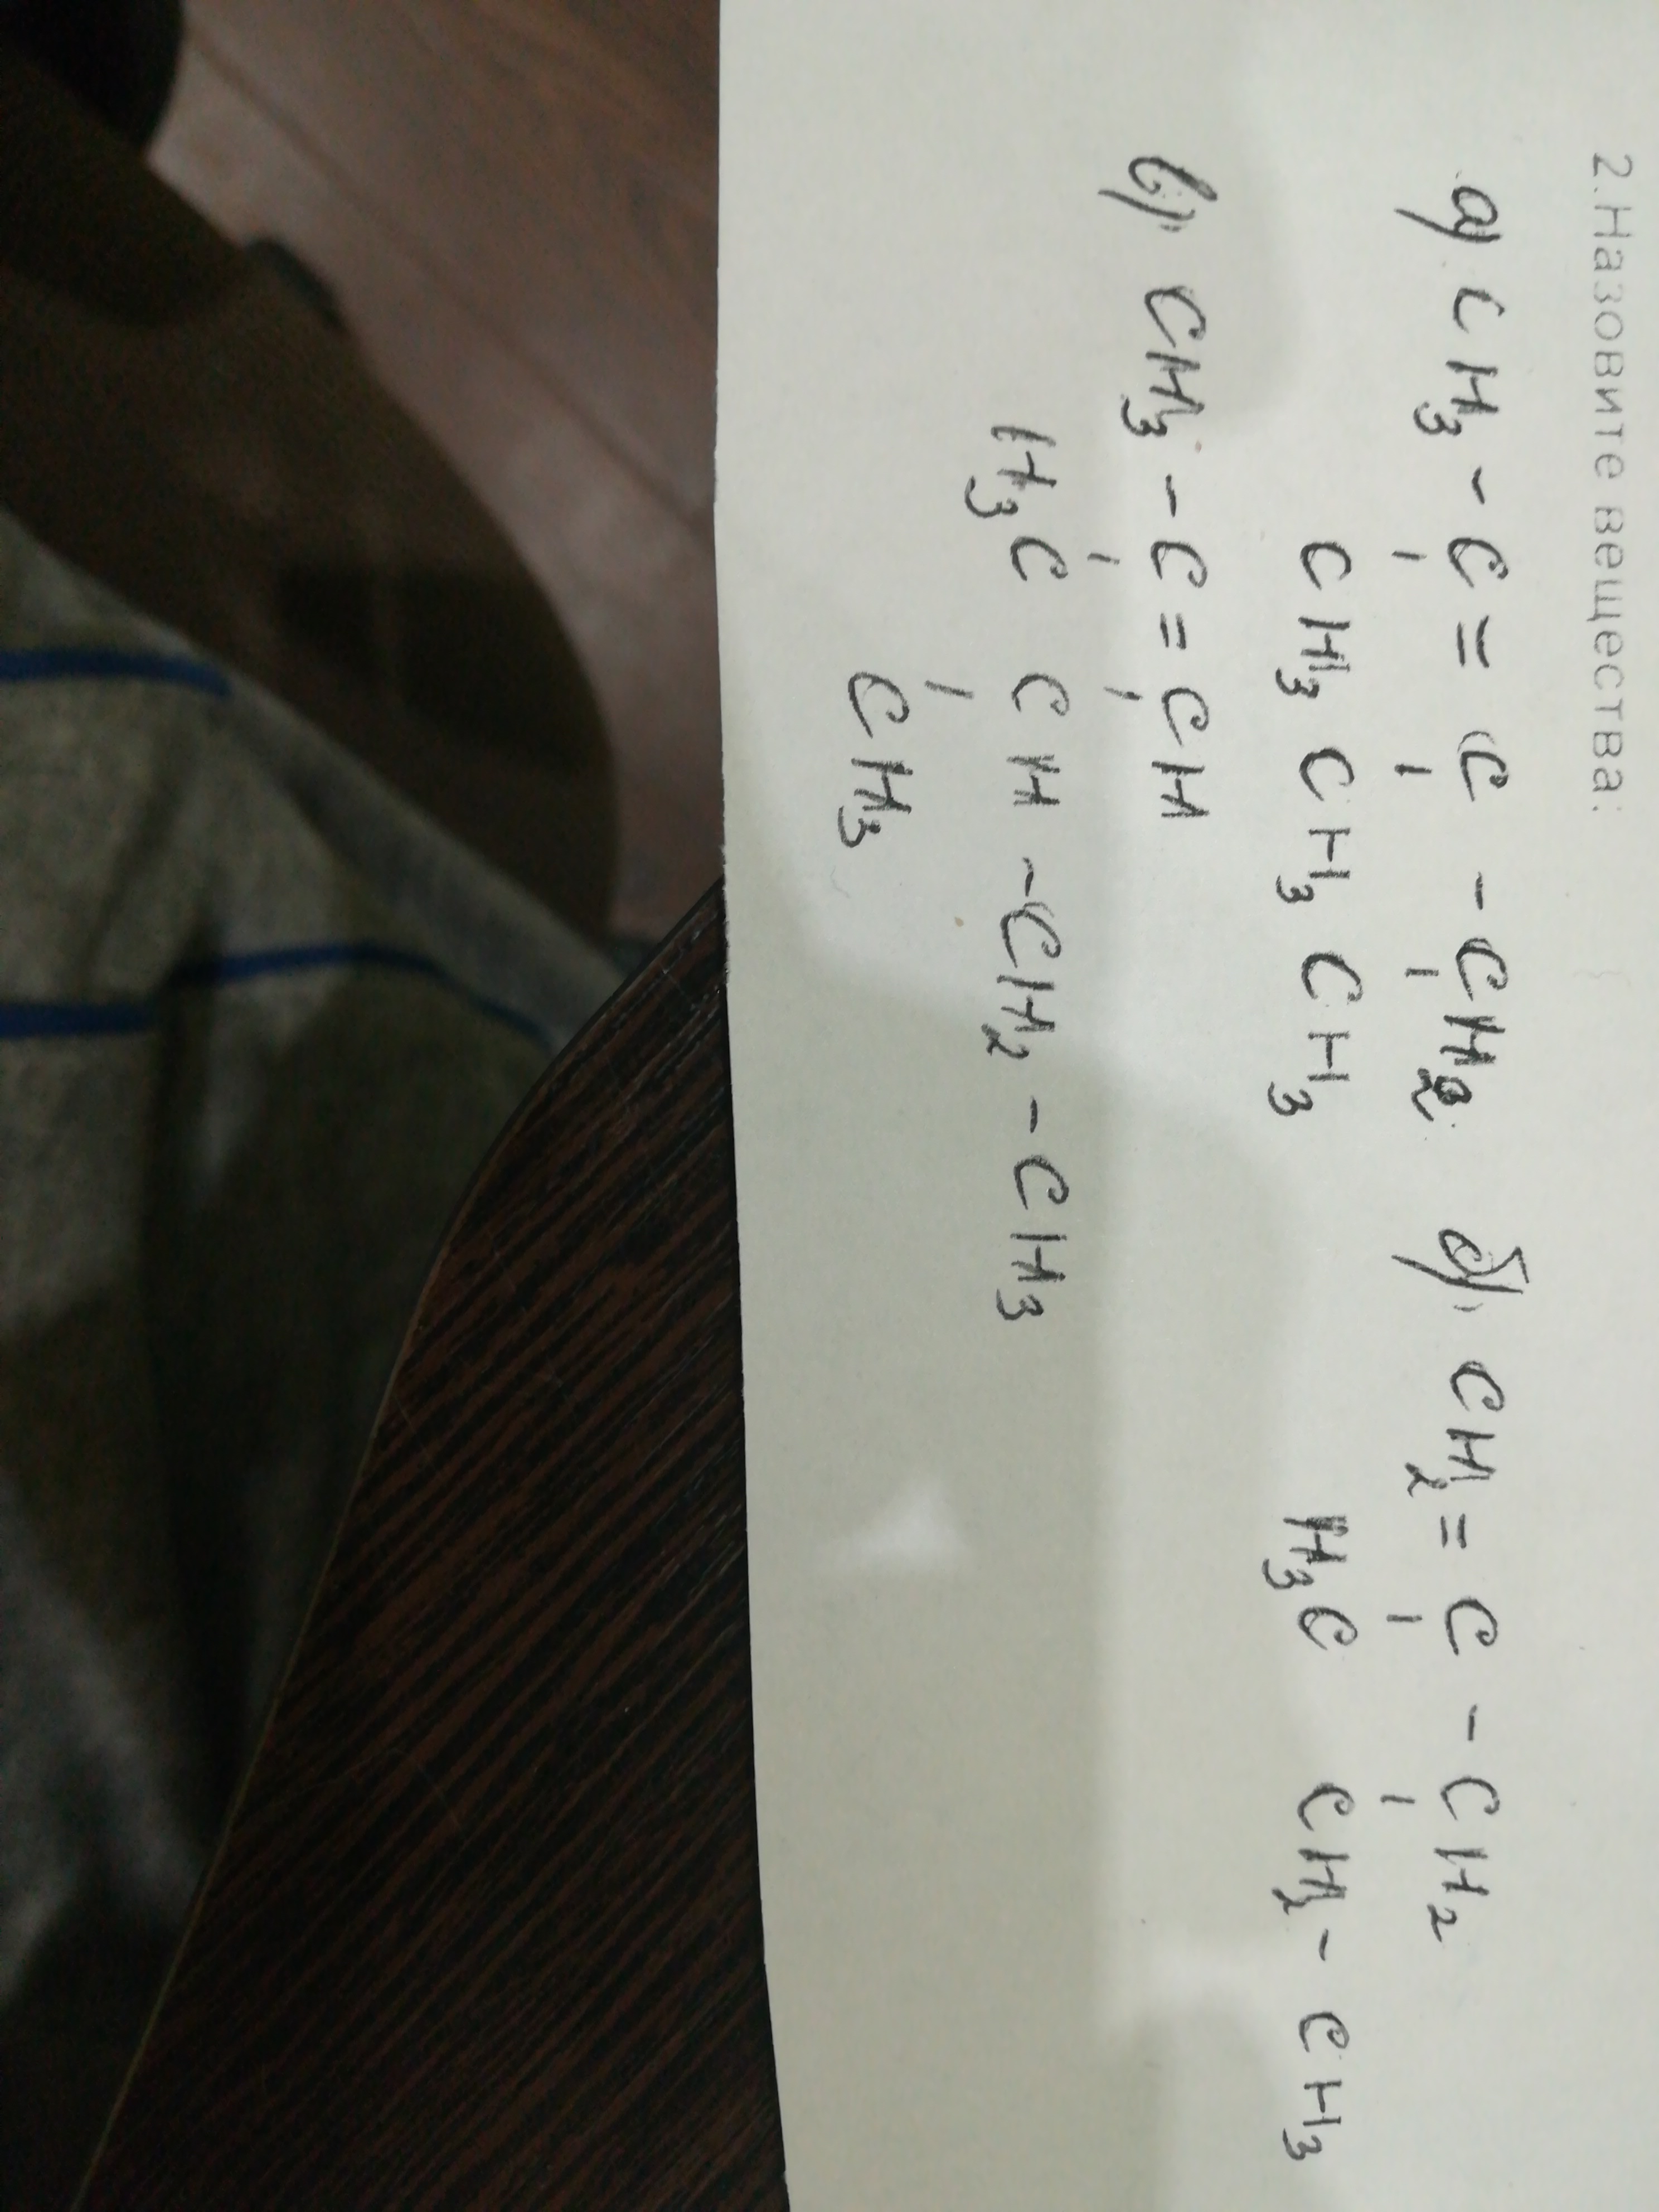 2.Назовите вещества:
а) CH3 - C = C - CH2 б) CH2 = C - CH2
CH3 CH3 CH3 H3C CH2 - CH3
в) CH3 - C = CH
H3C CH - CH2 - CH3
CH3